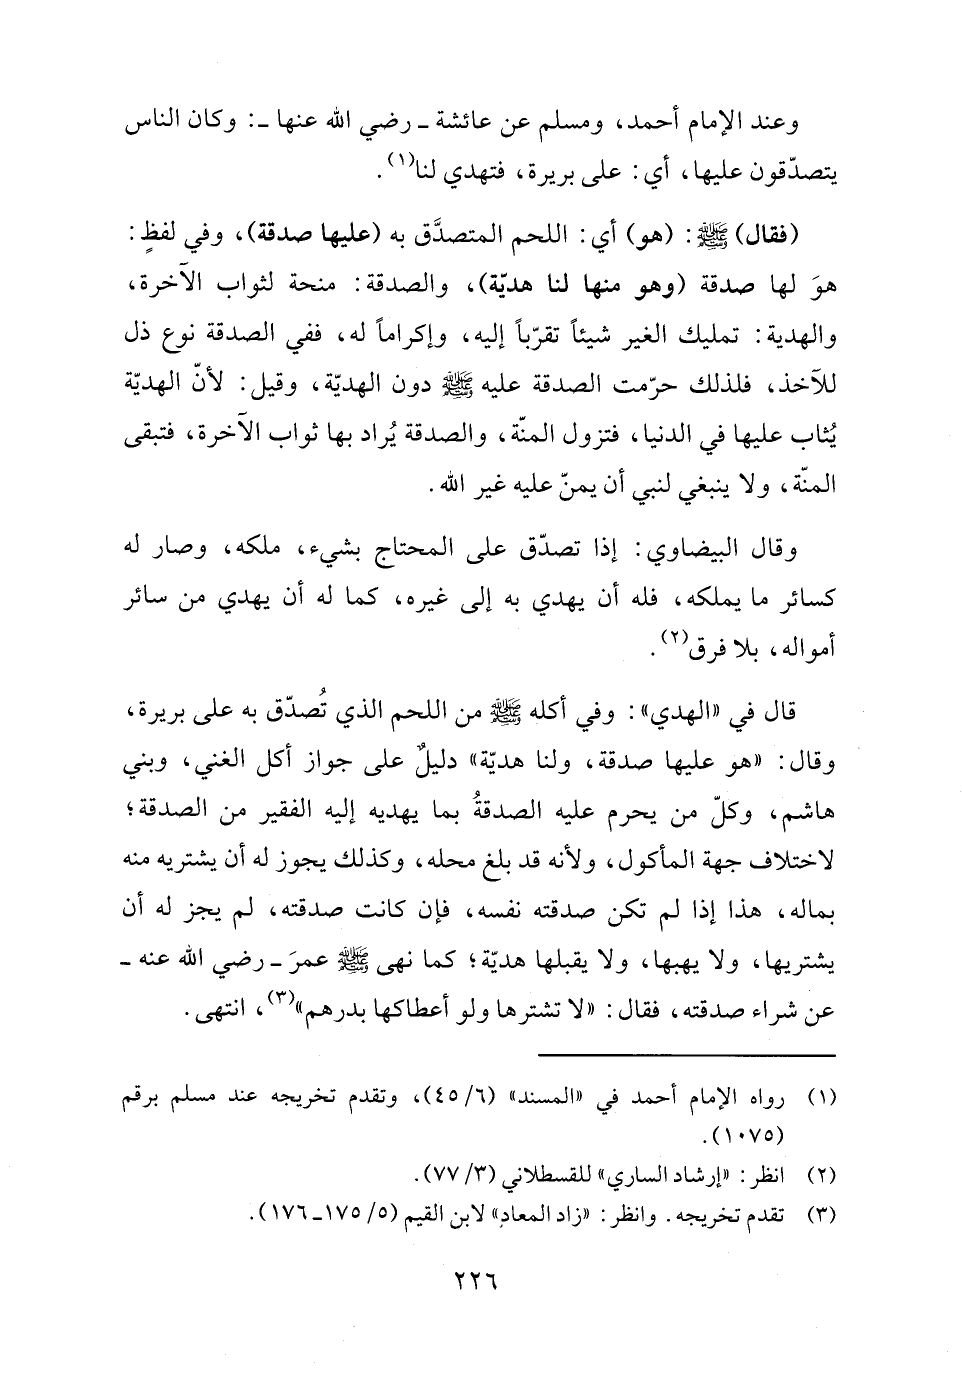 وعند الإمام أحمد، ومسلم عن عائشة ـ رضي الله عنها ـ: وكان الناس
يتصدّقون عليها، أي: على بريرة، فتهدي لنا(١).
(فقال) ﷺ: (هو) أي: اللحم المتصدَّق به (عليها صدقة)، وفي لفظٍ:
هوَ لها صدقة (وهو منها لنا هديّة)، والصدقة: منحة لثواب الآخرة،
والهدية: تمليك الغير شيئاً تقرّباً إليه، وإكراماً له، ففي الصدقة نوع ذل
للآخذ، فلذلك حرّمت الصدقة عليه ﷺ دون الهديّة، وقيل: لأنّ الهديّة
يُثاب عليها في الدنيا، فتزول المنّة، والصدقة يُراد بها ثواب الآخرة، فتبقى
المنّة، ولا ينبغي لنبي أن يمنّ عليه غير الله.
وقال البيضاوي: إذا تصدّق على المحتاج بشيء، ملكه، وصار له
كسائر ما يملكه، فله أن يهدي به إلى غيره، كما له أن يهدي من سائر
أمواله، بلا فرق(٢).
قال في «الهدي»: وفي أكله ﷺ من اللحم الذي تُصدّق به على بريرة،
وقال: «هو عليها صدقة، ولنا هديّة» دليلٌ على جواز أكل الغني، وبني
هاشم، وكلّ من يحرم عليه الصدقةُ بما يهديه إليه الفقير من الصدقة؛
لاختلاف جهة المأكول، ولأنه قد بلغ محله، وكذلك يجوز له أن يشتريه منه
بماله، هذا إذا لم تكن صدقته نفسه، فإن كانت صدقته، لم يجز له أن
يشتريها، ولا يهبها، ولا يقبلها هديّة؛ كما نهى ﷺ عمرَ ـ رضي الله عنه ـ
عن شراء صدقته، فقال: «لا تشترها ولو أعطاكها بدرهم»(٣)، انتهى.
(١) رواه الإمام أحمد في «المسند» (٦/ ٤٥)، وتقدم تخريجه عند مسلم برقم
(١٠٧٥).
(٢) انظر: «إرشاد الساري» للقسطلاني (٣/ ٧٧).
(٣) تقدم تخريجه. وانظر: «زاد المعاد» لابن القيم (٥/ ١٧٥ـ ١٧٦).
٢٢٦